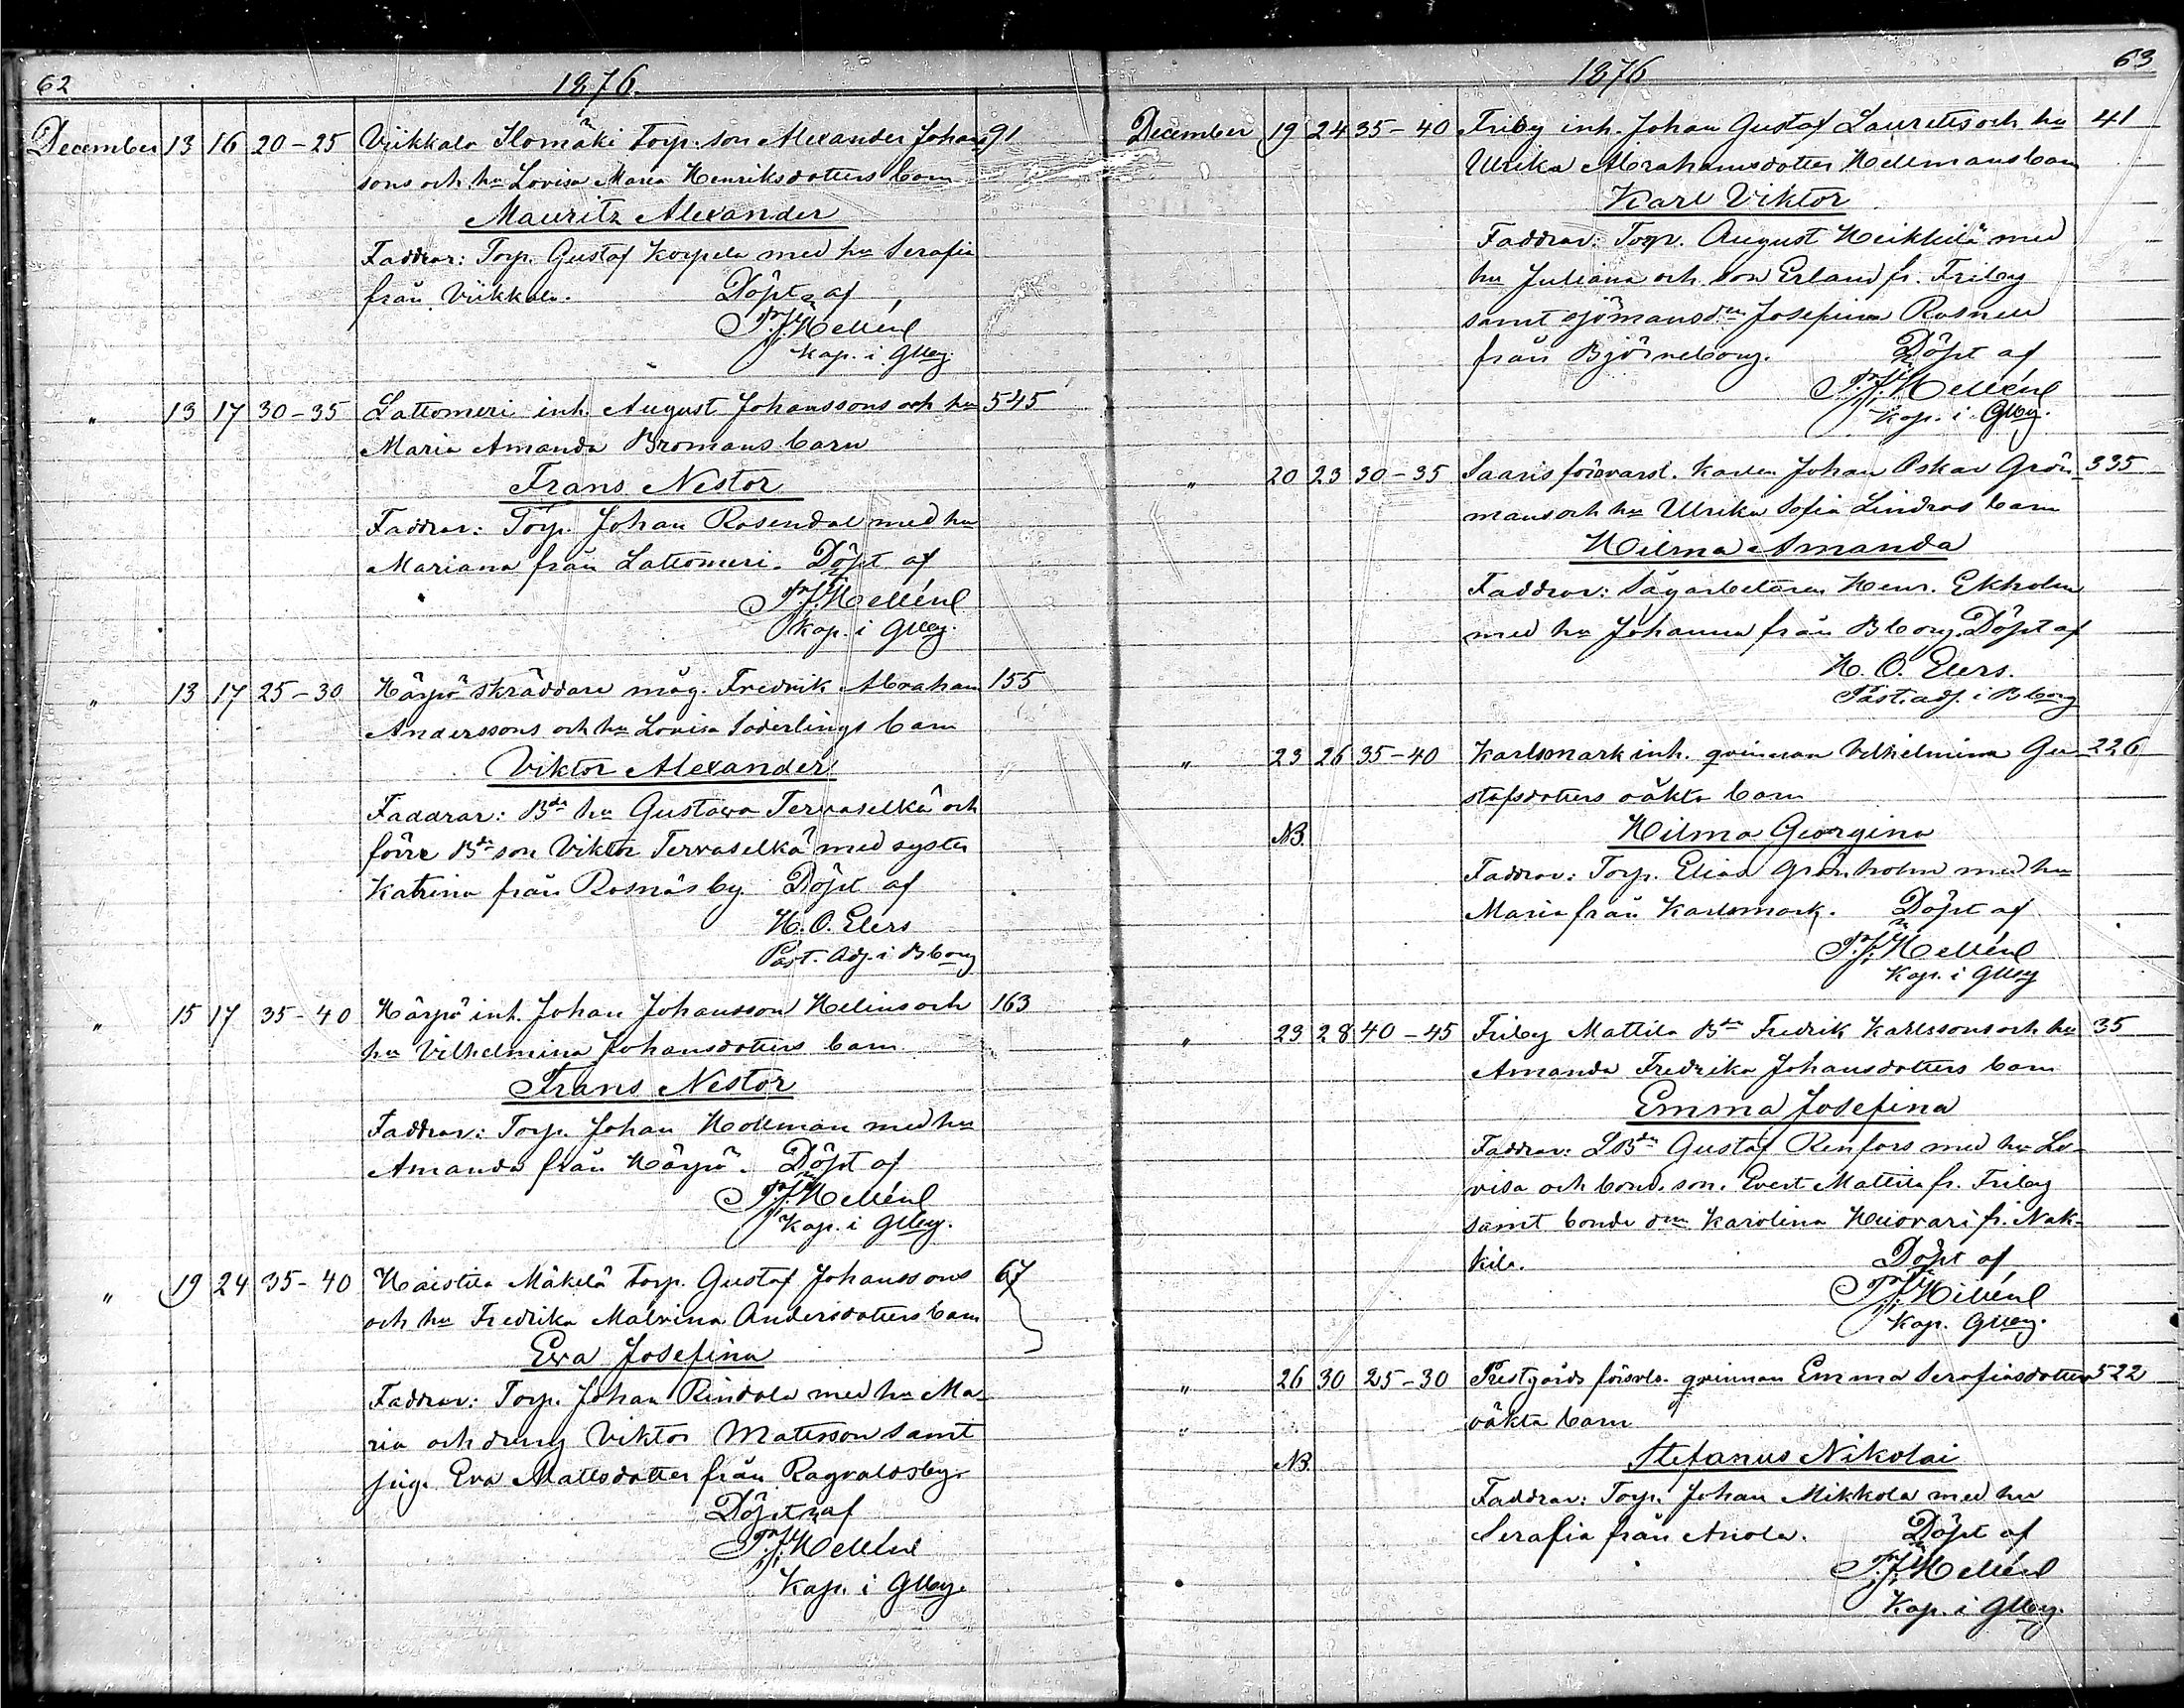 62
1876.
December 13 16 20-25 Viikkala Ilomäki Torp. son Alexander Johans 91
sons och hu Lovisa Maria Henriksdotters barn
Mauritz Alexander
Faddrar: Torp. Gustaf Korpela med hu Serafia
från Viikkala. Döpt af
Hellénl
Kap. i Glbg.
" 13 17 30-35 Lattomeri inh. August Johanssons och hu 545
Maria Amanda Bromans barn
Frans Nestor
Faddrar: Torp. Johan Rosendal med hu
Mariana från Lattomeri. Döpt af
Hellénl
Kap. i Glbg.
" 13 17 25-30 Härpö skräddare måg. Fredrik Abraham 155
Anderssons och hu Lovisa Söderlings barn
Viktor Alexander
Faddrar: Bde hu Gustava Tervaselkä och
förre Bde son Viktor Tervaselkä med syster
Katrina från Rosnäs by. Döpt af
H. O. Elers
Past. Adj. i Bborg
" 15 17 35-40 Härpö inh. Johan Johansson Helins och 163
hu Vilhelmina Johansdotters barn
Frans Nestor
Faddrar: Torp. Johan Hollman med hu
Amanda från Härpö. Döpt af
Hellénl
Kap. i Glbg.
" 19 24 35-40 Haistila Mäkelä Torp. Gustaf Johanssons 67
och hu Fredrika Malvina Andersdotters barn
Eva Josefina
Faddrar: Torp. Johan Rindala med hu Ma-
ria och dräng Viktor Matsson samt
pig. Eva Mattsdotter från Ragvaldsby.
Döpt af
Hellénl
Kap. i Glbg.
63
1876
December 19 24 35-40 Friby inh. Johan Gustaf Laurells och hu 41
Ulrika Abrahamsdotter Hellmans barn
Karl Viktor
Faddrar: Torp. August Heikkilä med
hu Juliana och son Erland fr. Friby
samt sjömansdn Josefina Rosnell
från Björneborg. Döpt af
Hellénl
Kap. i Glbg.
" 20 23 30-35 Saaris försvarsl. karlen Johan Oskar Grön- 335
mans och hu Ulrika Sofia Lindros barn
Hilma Amanda
Faddrar: Sågarbetaren Henr. Ekholm
med hu Johanna från Bborg. Döpt af
H. O. Elers.
Past. adj. i Bborg
" 23 26 35-40 Karlsmark inh. qvinnan Vilhelmina Gu- 226
stafsdotters oäkta barn
NB. Hilma Georgina
Faddrar: Torp. Elias Grönholm med hu
Maria från Karlsmark. Döpt af
Hellénl
Kap. i Glbg
" 23 28 40-45 Friby Mattila Bde Fredrik Karlssons och hu 35
Amanda Fredrika Johansdotters barn
Emma Josefina
Faddrar: LBde Gustaf Renfors med hu Lo-
visa och bond. son. Evert Mattila fr. Friby
samt bonde dtn Karolina Huovari fr. Nak-
kila. Döpt af
Hellénl
Kap. Glbg.
" 26 30 25-30 Prestgårds försvls. qvinnan Emma Serafiasdotter 522
" oäkta barn
NB. Stefanus Nikolai
Faddrar: Torp. Johan Mikkola med hu
Serafia från Anola. Döpt af
Hellénl
Kap. i Glbg.